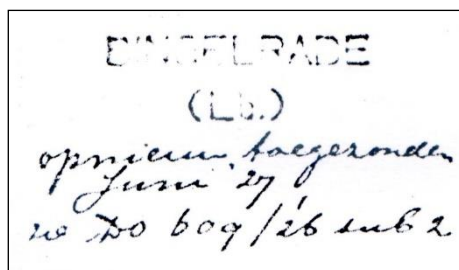 BINGELRADE
(Lb.)
opnieuw toegezonden
Juni '27
zie DO 609/'26 sub 2